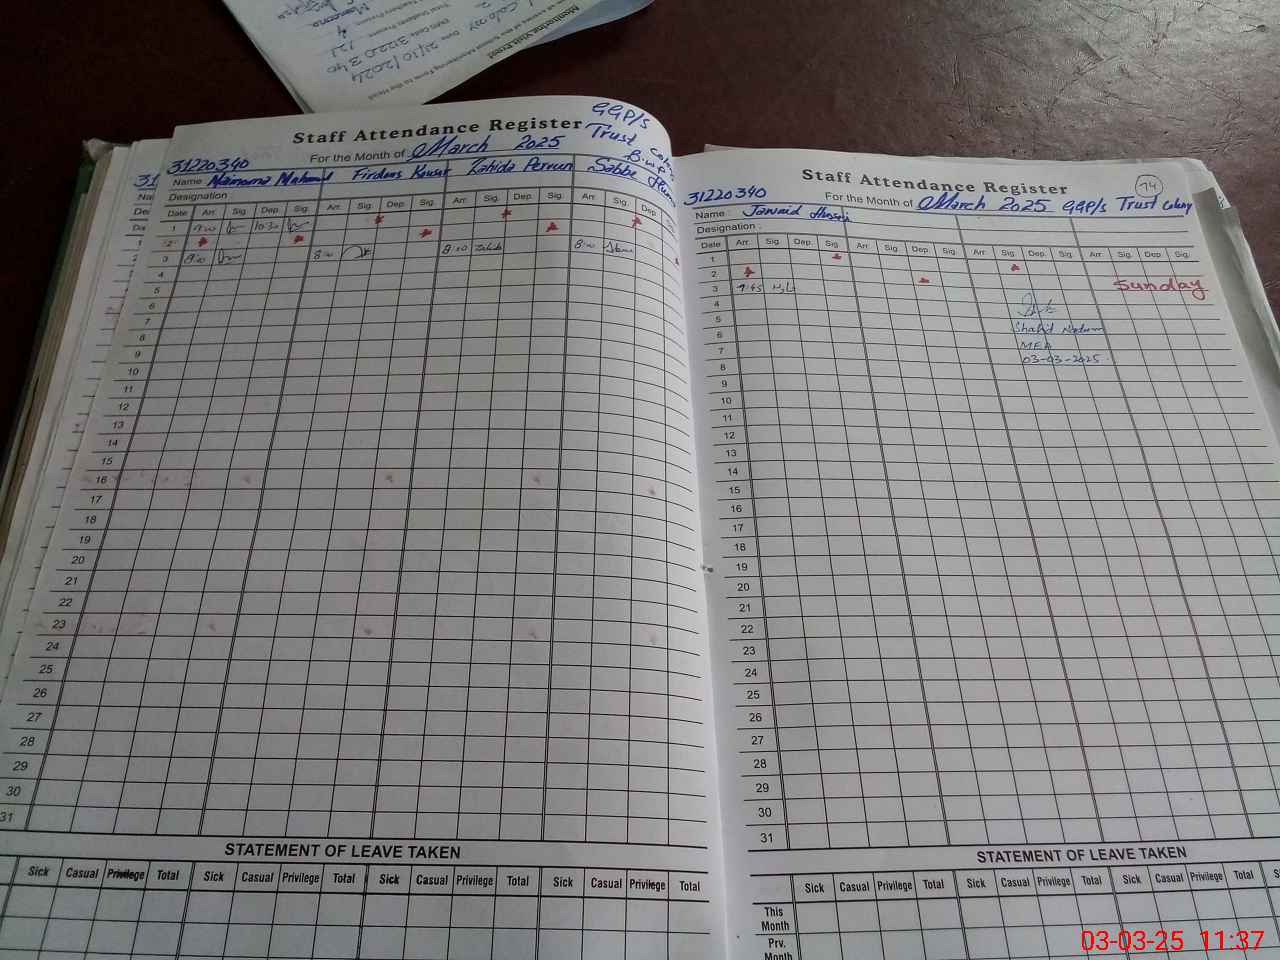 Monitoring Visit Proof
21/10/2024
31220340
121
4
GGP/S
Trust Colony
B.W.P
Staff Attendance Register
For the Month of March 2025
31220340
Name Maimoma Mahmud Firdous Kausar Zahida Perveen
Designation
Date Arr. Sig. Dep. Sig. Arr. Sig. Dep. Sig. Arr. Sig. Dep. Sig. Arr. Sig. Dep.
1 10:30
2
3 8:00 8:00 8:00 Zahida 8:00
4
5
6
7
8
9
10
11
12
13
14
15
16
17
18
19
20
21
22
23
24
25
26
27
28
29
30
31
STATEMENT OF LEAVE TAKEN
Sick Casual Privilege Total Sick Casual Privilege Total Sick Casual Privilege Total Sick Casual Privilege Total
Staff Attendance Register
14
31220340
For the Month of March 2025 GGP/S Trust Colony
Name : Jawaid Hussain
Designation :
Date Arr. Sig. Dep. Sig. Arr. Sig. Dep. Sig. Arr. Sig. Dep. Sig. Arr. Sig. Dep. Sig.
1
2 Sunday
3 7:45
4
5
Shahid Nadeem
6
MEA
7
03-03-2025
8
9
10
11
12
13
14
15
16
17
18
19
20
21
22
23
24
25
26
27
28
29
30
31
STATEMENT OF LEAVE TAKEN
Sick Casual Privilege Total Sick Casual Privilege Total Sick Casual Privilege Total
This Month
Prv. Month
03-03-25 11:37